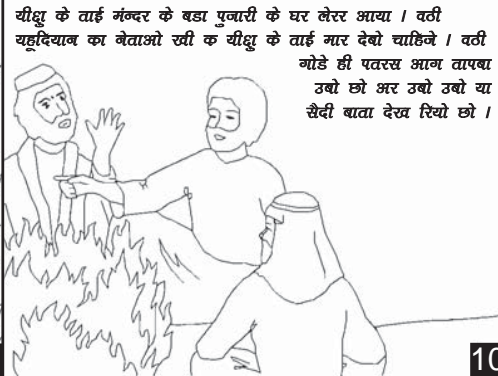 यीक्षु के ताई मंन्दर के बडा पुजारी के घर लेरर आया । वठी
यहूदियान का नेताओ रवी क यीक्षु के ताई मार देबो चाहिजे । वठी
गोडे ही पतरस आग तापबा
उबो छो भर उबो उबो या
सैदी बाता देख रियो छो ।
10